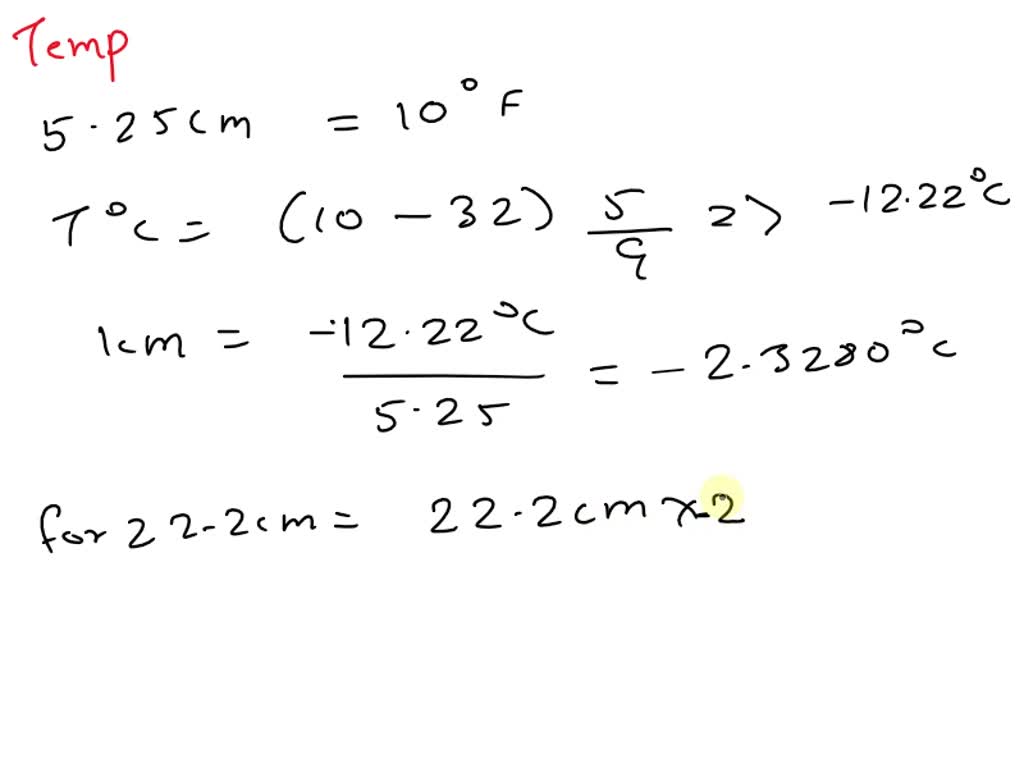 Temp
5.25cm = 10°F
T°C = (10 - 32) 5/9 => -12.22°C
1cm = -12.22°C/5.25 = -2.3280°C
for 22.2cm = 22.2cm x-2